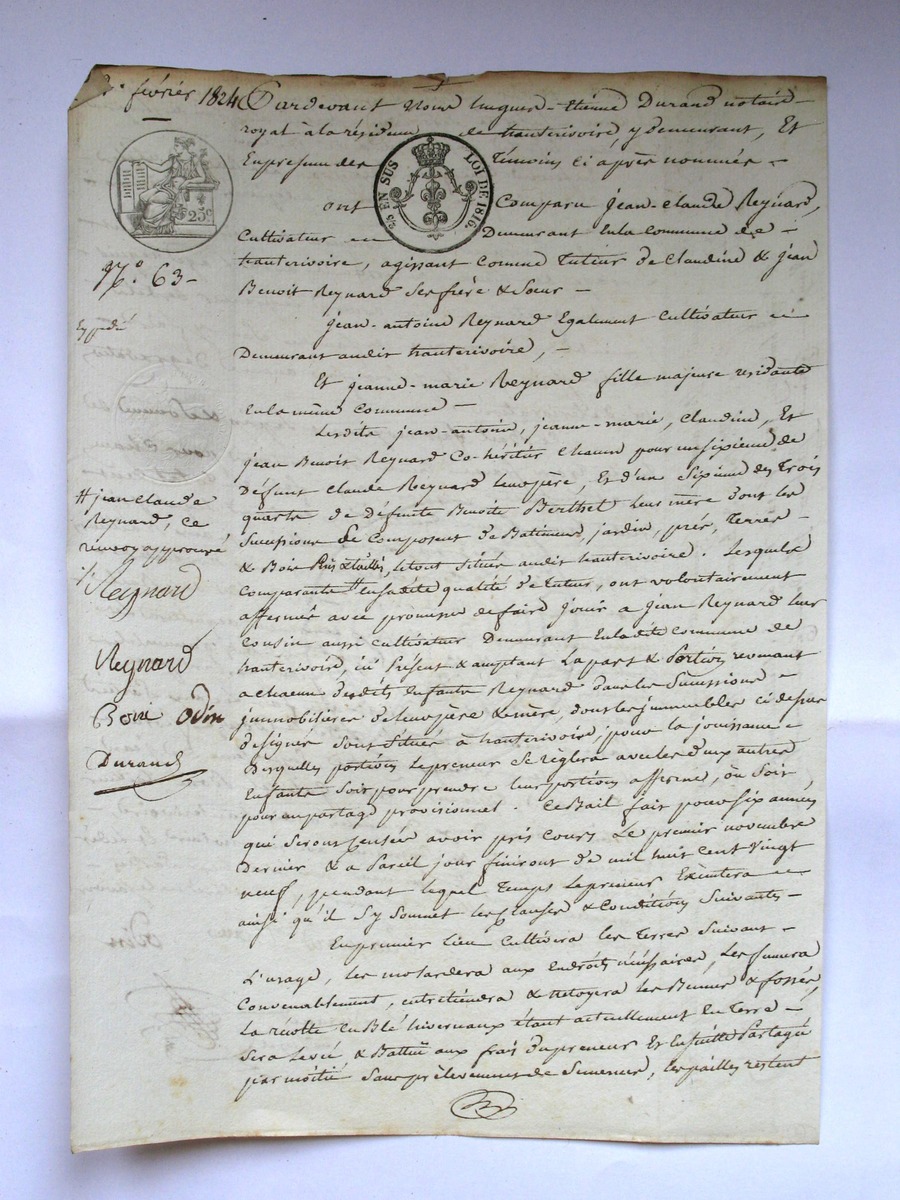 février 1824
Pardevant Nous hugues-Etienne Durand notaire
royal à la résidence de hauterivoire, y demeurant, Et
En presence des Témoins ci après nommés -
25c
EN SUS LOI DE 1816.
ont Comparu jean-claude Reynard,
Cultivateur en Demeurant Enla commune de -
hauterivoire, agissant comme tuteur de Claudine & jean
N.o 63 -
Benoit Reynard ses frère & Soeur -
Expédié
jean-antoine Reynard Egalement Cultivateur en
Demeurant audit hauterivoire, -
Et jeanne-marie Reynard fille majeure residante
Enla même Commune -
Lesdits jean-antoine, jeanne-marie, Claudine, Et
jean Benoit Reynard Co-héritiers chacun pour un sixieme de
Défunt Claude Reynard leur père, Et d'un Sixieme des Trois
quarts de défunte Benoite Berthet leur mère dont les
Successions se Composent de Batimens, jardin, prés, Terres -
& Bois Pins & taillis, le tout Situés audit hauterivoire. Lesquels
Comparants # ensadite qualité de tuteur, ont volontairement
affermé avec promesse de faire jouir a jean Reynard leur
cousin aussi cultivateur Demeurant Enladite commune de
hauterivoire, ici Présent & acceptant La part & Portion revenant
a chacun desdits Enfants Reynard dans les Successions -
immobilières de leurs père & mère, dont les immeubles ci dessus
designés sont situés à hauterivoire, pour la jouissance -
Desquelles portions le preneur se règlera avec les deux autres
Enfants soit pour prendre leurs portions a fferme, ou Soit
pour un partage provisionnel. Ce Bail fait pour six années
qui seront Censées avoir pris Cours Le premier novembre
Dernier & a Pareil jour finiront de mil huit Cent Vingt
neuf, pendant lequel Temps le preneur Executera -
ainsi qu'il s'y Soumet les clauses & Conditions Suivantes -
En premier lieu Cultivera les Terres Suivant -
L'usage, les aux Endroits nécéssaires, Les fumera
Convenablement, entretiendra & netoyera les & fossés,
La récolte en Blé hivernaux étant actuellement En Terre -
Sera Levée & Battue aux frais du preneur Et Ensuitte Partagée
par moitié Sans prélevement de Semences, les pailles restent
# jean claude
Reynard, Ce
renvoy approuvé
Reignard
Reynard
Odin
Durand